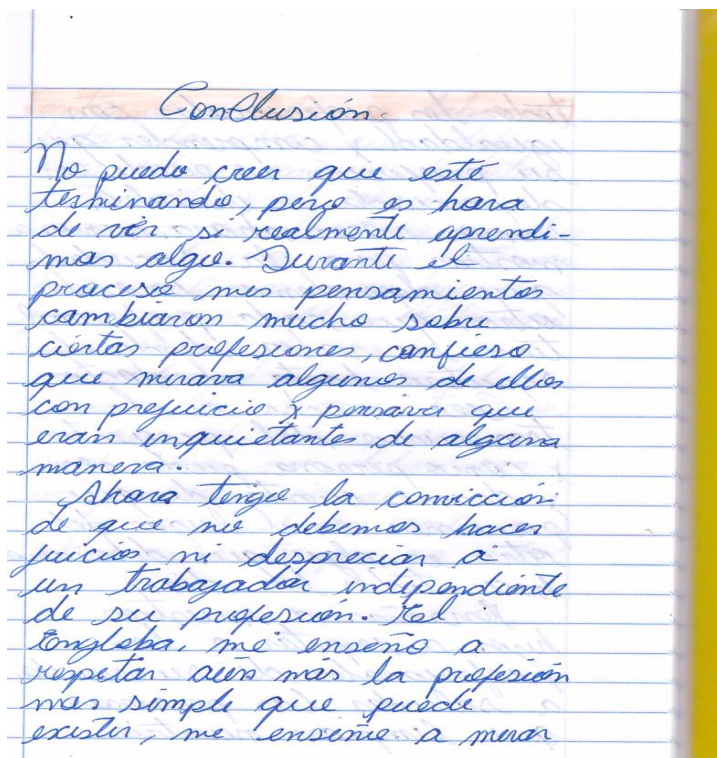 Conclusión.
No puedo creer que este
terminando, pero es hora
de ver si realmente aprendi-
mos algo. Durante el
proceso mis pensamientos
cambiaron mucho sobre
ciertas profesiones, confieso
que mirava algunos de ellos
con prejuicio y pensava que
eran inquietantes de alguna
manera.
Ahora tengo la convicción
de que no debemos hacer
juicios ni despreciar a
un trabajador independiente
de su profesión. El
Engloba, me enseño a
respetar aún más la profesión
mas simple que puede
existir, me enseñe a mirar